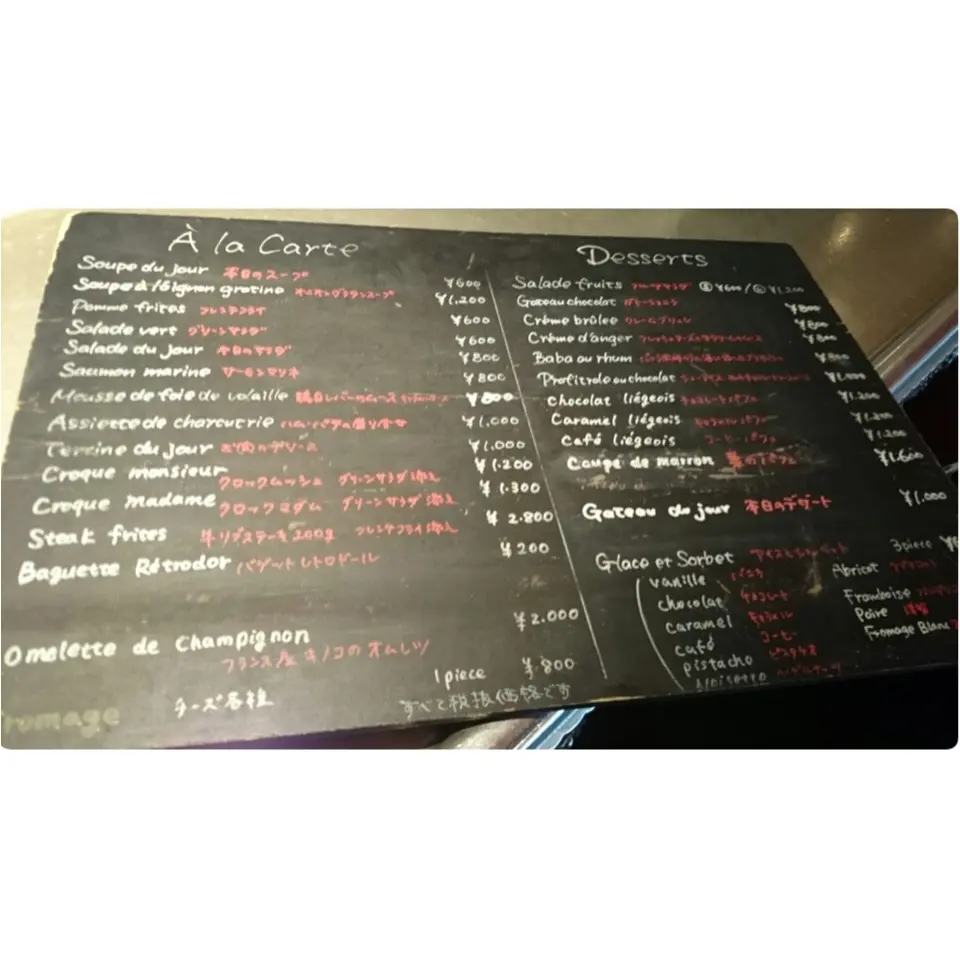 À la Carte
Soupe du jour 本日のスープ ¥600
Soupe à l'oignon gratine オニオングラタンスープ ¥1.200
Pomme frites フレンチフライ ¥600
Salade vert グリーンサラダ ¥600
Salade du jour 本日のサラダ ¥800
Saumon marine サーモンマリネ ¥800
Mousse de foie de volaille 鶏白レバーのムース ¥800
Assiette de charcuterie ハム・パテの盛り合せ ¥1.000
Terrine du jour お肉のテリーヌ ¥1.000
Croque monsieur クロックムッシュ グリーンサラダ添え ¥1.200
Croque madame クロックマダム グリーンサラダ添え ¥1.300
Steak frites 牛リブステーキ200g フレンチフライ添え ¥2.800
Baguette Rétrodor バゲットレトロドール ¥200
Omelette de Champignon ¥2.000
フランス産 キノコのオムレツ
Fromage チーズ各種 1piece ¥.800
すべて税抜価格です
Desserts
Salade fruits フルーツサラダ Ⓢ ¥600/Ⓛ ¥1.200
Gateau chocolat ガトーショコラ ¥800
Crème brûlee クレームブリュレ ¥800
Crème d'anger ¥800
Baba au rhum ¥800
Profitrole au chocolat ¥1.000
Chocolat liégeois チョコレートパフェ ¥1.200
Caramel liégeois キャラメルパフェ ¥1.200
Café liégeois コーヒーパフェ ¥1.200
Coupe de marron 栗のパフェ ¥1.600
Gateau du jour 本日のデザート ¥1.000
Glace et Sorbet アイスとシャーベット 3piece
vanille バニラ
chocolat チョコレート
caramel キャラメル
café コーヒー
pistache ピスタチオ
Noisette ヘーゼルナッツ
Abricot アプリコット
Framboise
Poire 洋梨
Fromage Blanc